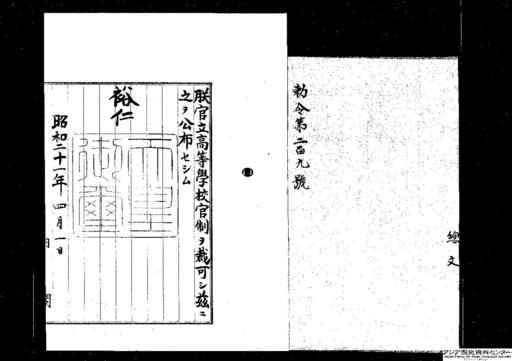 勅令第二百九號
總
文
朕官立高等學校官制ヲ裁可シ茲ニ
之ヲ公布セシム
裕仁
天皇
御璽
昭和二十一年四月一日
内
閣
アジア歴史資料センター